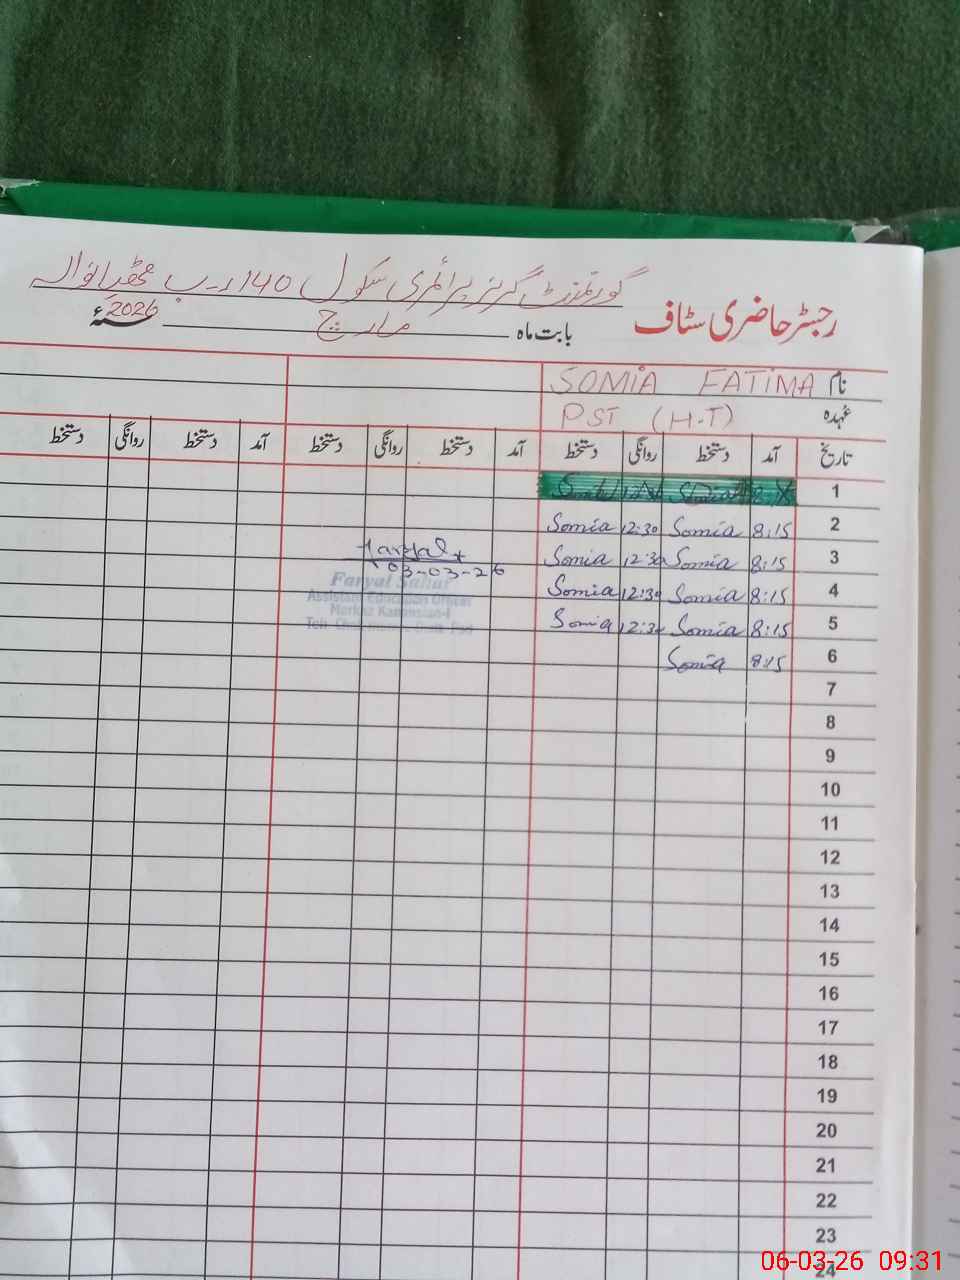 گورنمنٹ گرلز پرائمری سکول 140 ر۔ب
رجسٹر حاضری سٹاف بابت ماہ مارچ 2026 سنہء
نام SOMIA FATIMA
عہدہ PST (H.T)
تاریخ آمد دستخط روانگی دستخط آمد دستخط روانگی دستخط آمد دستخط روانگی دستخط
1
2 8:15 Somia 12:30 Somia
3 8:15 Somia 12:30 Somia
4 8:15 Somia 12:30 Somia
5 8:15 Somia 12:30 Somia
6 8:15 Somia
Faryal
03-03-26
Faryal Sahar
Assistant Education Officer
Markaz
7
8
9
10
11
12
13
14
15
16
17
18
19
20
21
22
23
24
06-03-26 09:31